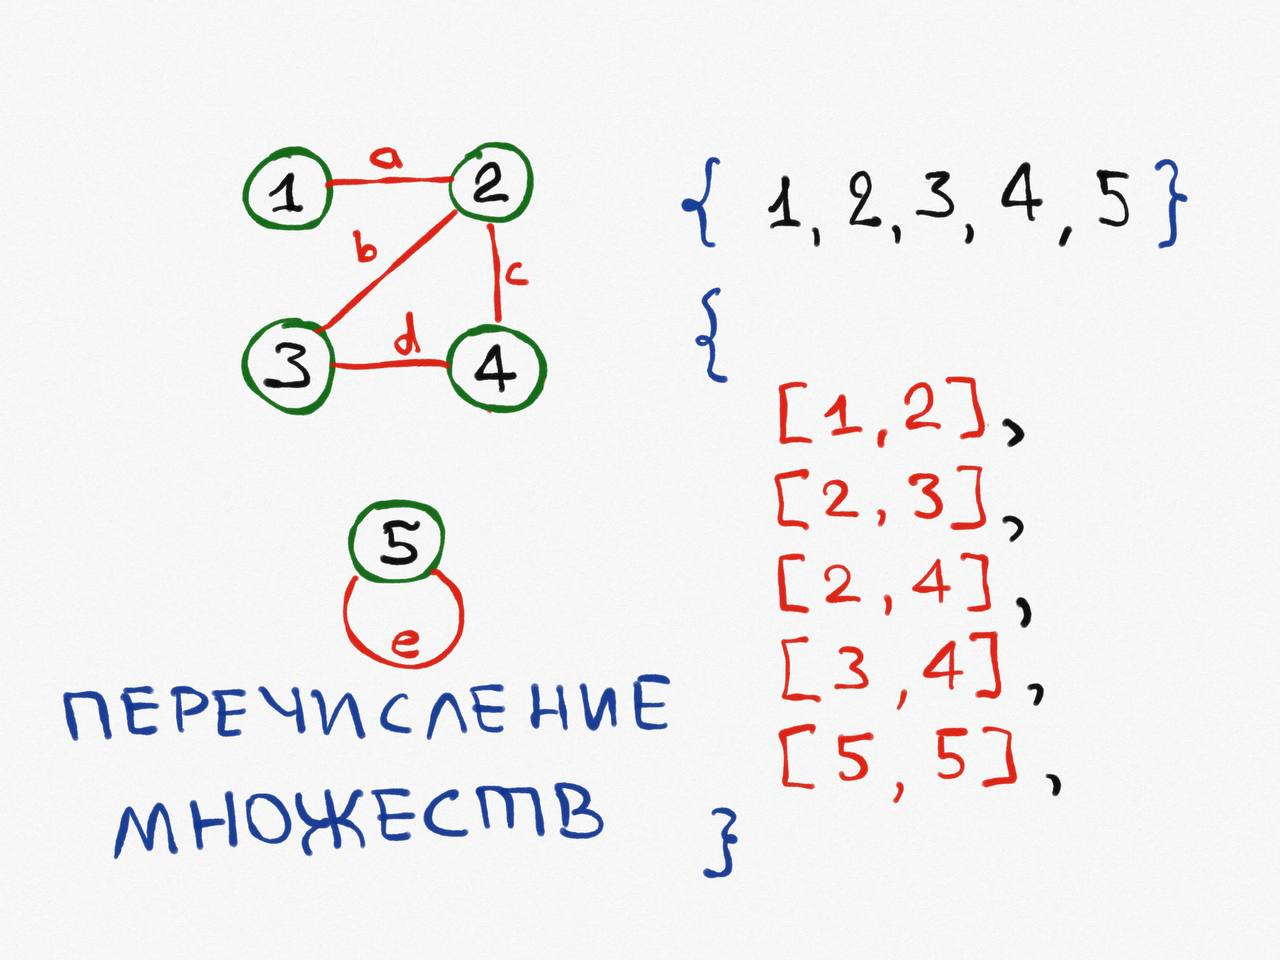 a
1 2
b
c
d
3 4
5
e
ПЕРЕЧИСЛЕНИЕ
МНОЖЕСТВ
{ 1, 2, 3, 4, 5 }
{
[1, 2],
[2, 3],
[2, 4],
[3, 4],
[5, 5],
}